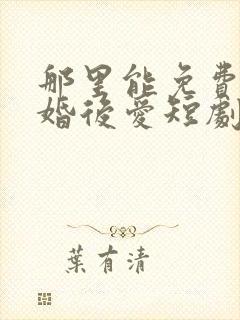 那里能免費
婚後愛短劇
葉有清